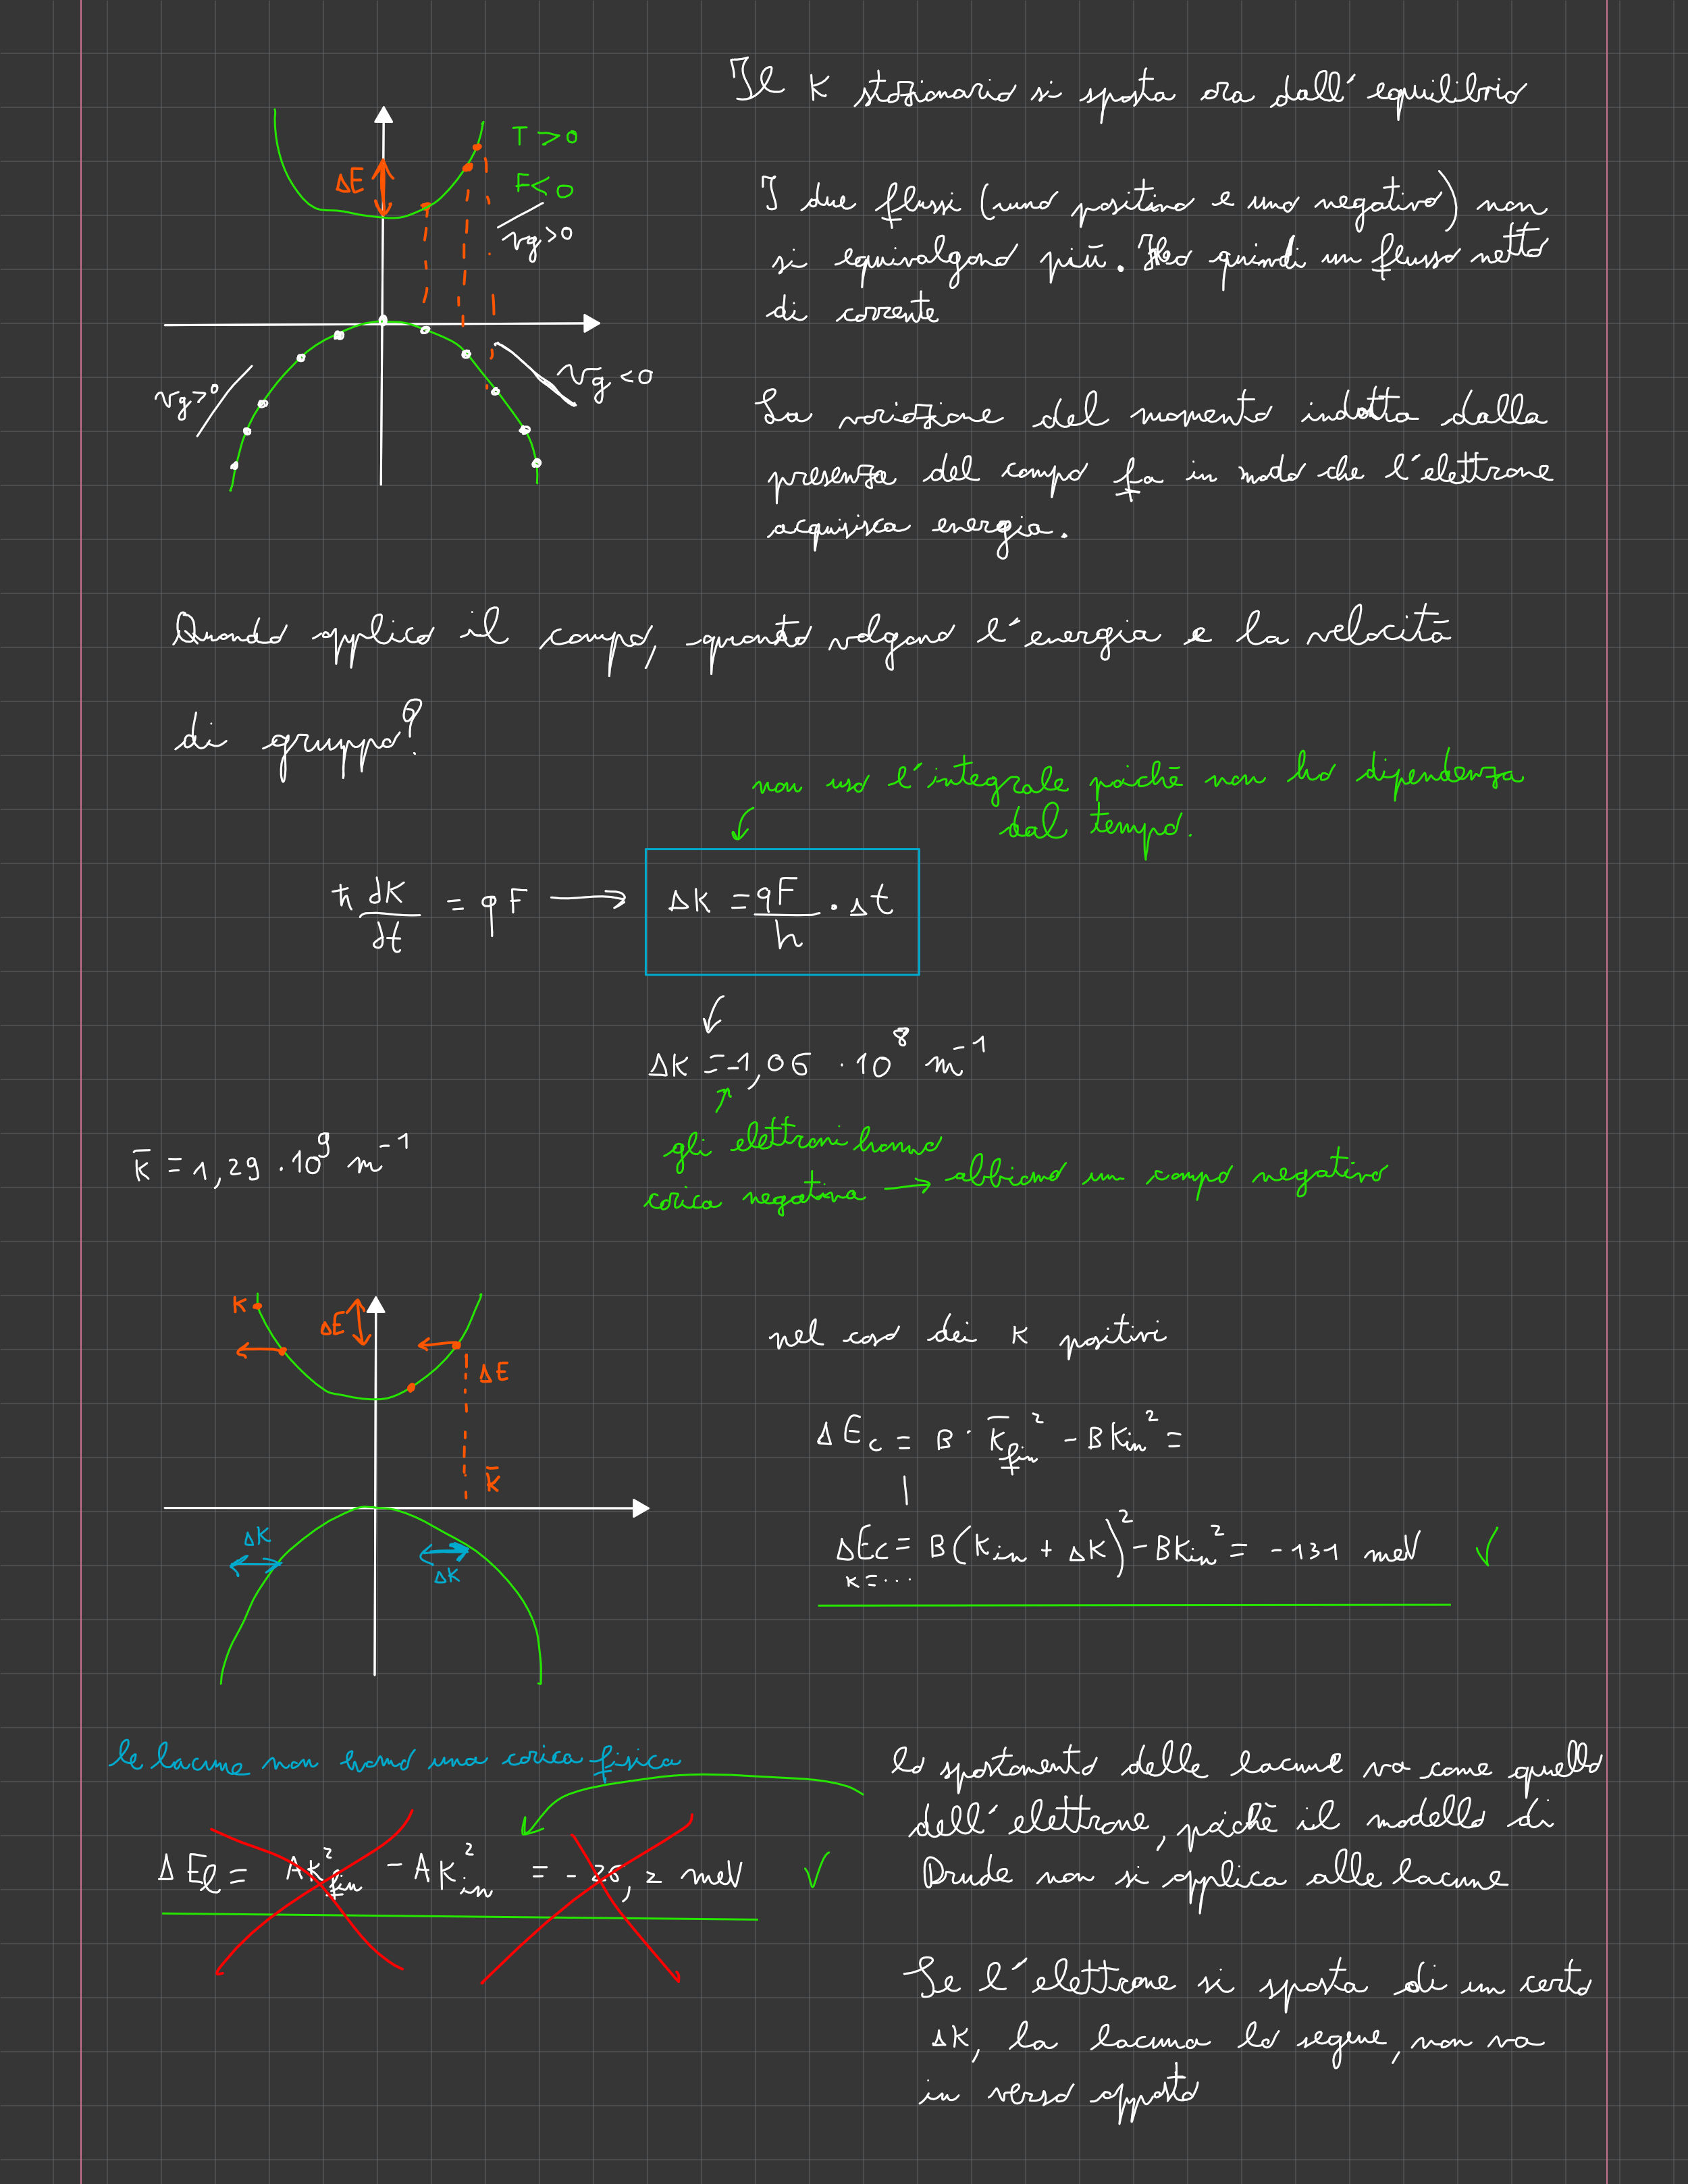 Il K stazionario si sposta ora dall'equilibrio
T > 0
ΔE
F < 0
vg > 0
I due flussi (uno positivo e uno negativo) non
si equivalgono più. Ho quindi un flusso netto
di corrente
vg > 0
vg < 0
La variazione del momento indotta dalla
presenza del campo fa in modo che l'elettrone
acquisisca energia.
Quando applico il campo, quanto valgono l'energia e la velocità
di gruppo?
non uso l'integrale poiché non ho dipendenza
dal tempo.
ħ dK/dt = qF → ΔK = qF/h · Δt
ΔK = -1,06 · 10^8 m^-1
K̄ = 1,29 · 10^9 m^-1
gli elettroni hanno
carica negativa → abbiamo un campo negativo
K
ΔE
ΔE
K̄
nel caso dei K positivi
ΔEc = B · K̄fin² - BKin² =
ΔK
ΔK
ΔEc = B(Kin + ΔK)² - BKin² = -131 meV ✓
K = ...
le lacune non hanno una carica fisica
lo spostamento delle lacune va come quello
dell'elettrone, poiché il modello di
ΔEl = AK²fin - AK²in = -26,2 meV ✓
Drude non si applica alle lacune
Se l'elettrone si sposta di un certo
ΔK, la lacuna lo segue, non va
in verso opposto